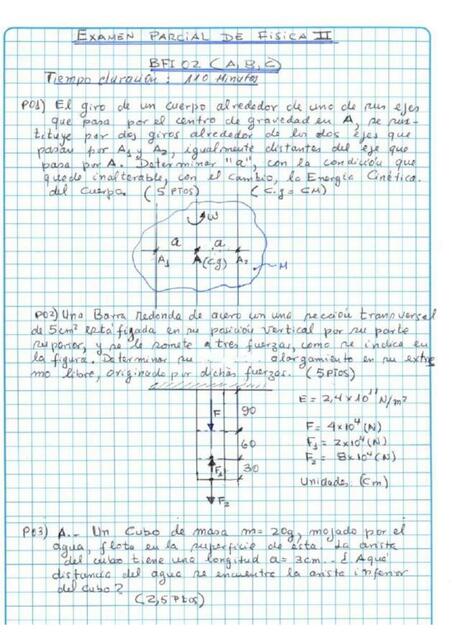 EXAMEN PARCIAL DE FISICA II
BFI 02 (A, B, C)
Tiempo duración: 110 Minutos
P01) El giro de un cuerpo alrededor de uno de sus ejes
que pasa por el centro de gravedad en A, se sus-
tituye por dos giros alrededor de los dos ejes que
pasan por A1 y A2, igualmente distantes del eje que
pasa por A. Determinar "a", con la condición que
quede inalterable, con el cambio, la Energía Cinética.
del Cuerpo. (5 PTOS) (C.g = CM)
ω
a a
A1 A(cg) A2
M
P02) Una Barra redonda de acero un una sección transversal
de 5cm² está fijada en su posición vertical por su parte
superior, y se le somete a tres fuerzas, como se indica en
la figura. Determinar su alargamiento en su extre
mo libre, originado por dichas fuerzas. (5 PTOS)
E = 2,4x10¹¹ N/m²
F 90
F = 4x10⁴ (N)
60
F1 = 2x10⁴ (N)
F1 30
F2 = 8x10⁴ (N)
F2
Unidades (Cm)
P03) A.- Un Cubo de masa m= 20g, mojado por el
agua, flota en la superficie de ésta. La arista
del cubo tiene una longitud a= 3cm.. ¿Aqué
distancia del agua se encuentra la arista inferior
del cubo?
(2,5 Ptos)